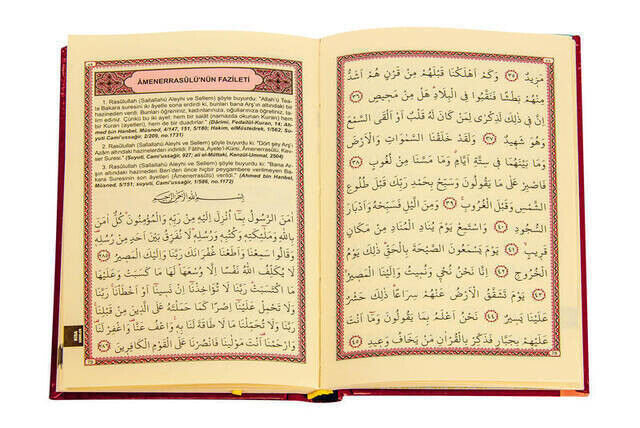 ÂMENERRASÛLÜ'NÜN FAZİLETİ
1. Rasûlullah (Sallallahü Aleyhi ve Sellem) şöyle buyurdu: "Allah'ü Tea-
la Bakara suresini iki âyetle sona erdirdi ki, bunları bana Arş'ın altındaki bir
hazineden verdi. Bunları öğreniniz, kadınlarınıza, oğullarınıza öğretiniz, bel-
leyin ediniz. Çünkü bu iki ayet; hem bir salât (namazda okunan Kurân) hem
bir Kuran (ayetleri), hem de bir duadırlar."
2. Rasûlullah (Sallallahü Aleyhi ve Sellem) şöyle buyurdu ki: "Dört şey Arş'ı
Azâm altındaki hazinelerden indirildi: Fâtiha, Âyete'l-Kürsi, Âmenerrasûlü, Kev-
ser Suresi."
3. Rasûlullah (Sallallahü Aleyhi ve Sellem) şöyle buyurdu ki: "Bana Ar-
şın altındaki hazineden Ben'den önce hiçbir peygambere verilmeyen Ba-
kara Suresinin son âyetleri (Âmenerrasûlü) verildi."
بِسْمِ اللّٰهِ الرَّحْمٰنِ الرَّحِيمِ
اٰمَنَ الرَّسُولُ بِمَٓا اُنْزِلَ اِلَيْهِ مِنْ رَبِّهِ وَالْمُؤْمِنُونَ كُلٌّ اٰمَنَ
بِاللّٰهِ وَمَلٰٓئِكَتِهِ وَكُتُبِهِ وَرُسُلِهِ لَا نُفَرِّقُ بَيْنَ اَحَدٍ مِنْ رُسُلِهِ
وَقَالُوا سَمِعْنَا وَاَطَعْنَا غُفْرَانَكَ رَبَّنَا وَاِلَيْكَ الْمَصِيرُ ﴿٢٨٥﴾
لَا يُكَلِّفُ اللّٰهُ نَفْسًا اِلَّا وُسْعَهَا لَهَا مَا كَسَبَتْ وَعَلَيْهَا
مَا اكْتَسَبَتْ رَبَّنَا لَا تُؤَاخِذْنَٓا اِنْ نَسِينَٓا اَوْ اَخْطَأْنَا رَبَّنَا
وَلَا تَحْمِلْ عَلَيْنَٓا اِصْرًا كَمَا حَمَلْتَهُ عَلَى الَّذِينَ مِنْ قَبْلِنَا
رَبَّنَا وَلَا تُحَمِّلْنَا مَا لَا طَاقَةَ لَنَا بِهِ وَاعْفُ عَنَّا وَاغْفِرْ لَنَا
وَارْحَمْنَا اَنْتَ مَوْلٰينَا فَانْصُرْنَا عَلَى الْقَوْمِ الْكَافِرِينَ ﴿٢٨٦﴾
مَزِيدٌ ﴿٣٥﴾ وَكَمْ اَهْلَكْنَا قَبْلَهُمْ مِنْ قَرْنٍ هُمْ اَشَدُّ
مِنْهُمْ بَطْشًا فَنَقَّبُوا فِي الْبِلَادِ هَلْ مِنْ مَحِيصٍ ﴿٣٦﴾
اِنَّ فِي ذٰلِكَ لَذِكْرٰى لِمَنْ كَانَ لَهُ قَلْبٌ اَوْ اَلْقَى السَّمْعَ
وَهُوَ شَهِيدٌ ﴿٣٧﴾ وَلَقَدْ خَلَقْنَا السَّمٰوَاتِ وَالْاَرْضَ
وَمَا بَيْنَهُمَا فِي سِتَّةِ اَيَّامٍ وَمَا مَسَّنَا مِنْ لُغُوبٍ ﴿٣٨﴾
فَاصْبِرْ عَلٰى مَا يَقُولُونَ وَسَبِّحْ بِحَمْدِ رَبِّكَ قَبْلَ طُلُوعِ
الشَّمْسِ وَقَبْلَ الْغُرُوبِ ﴿٣٩﴾ وَمِنَ الَّيْلِ فَسَبِّحْهُ وَاَدْبَارَ
السُّجُودِ ﴿٤٠﴾ وَاسْتَمِعْ يَوْمَ يُنَادِ الْمُنَادِ مِنْ مَكَانٍ
قَرِيبٍ ﴿٤١﴾ يَوْمَ يَسْمَعُونَ الصَّيْحَةَ بِالْحَقِّ ذٰلِكَ يَوْمُ
الْخُرُوجِ ﴿٤٢﴾ اِنَّا نَحْنُ نُحْيِ وَنُمِيتُ وَاِلَيْنَا الْمَصِيرُ
﴿٤٣﴾ يَوْمَ تَشَقَّقُ الْاَرْضُ عَنْهُمْ سِرَاعًا ذٰلِكَ حَشْرٌ
عَلَيْنَا يَسِيرٌ ﴿٤٤﴾ نَحْنُ اَعْلَمُ بِمَا يَقُولُونَ وَمَٓا اَنْتَ
عَلَيْهِمْ بِجَبَّارٍ فَذَكِّرْ بِالْقُرْاٰنِ مَنْ يَخَافُ وَعِيدِ ﴿٤٥﴾